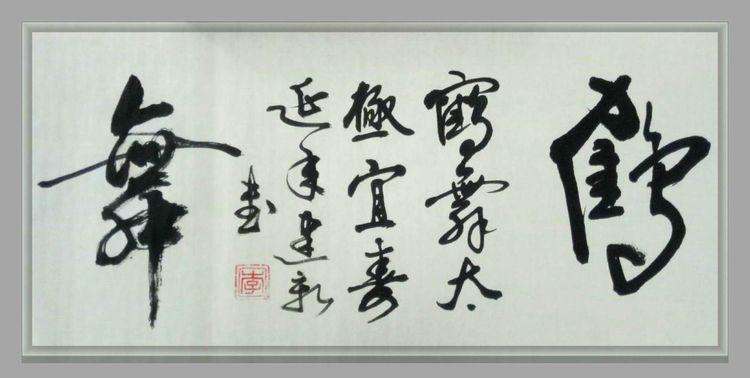 鶴
鶴舞太
極宜壽
延年建新
書
李
舞